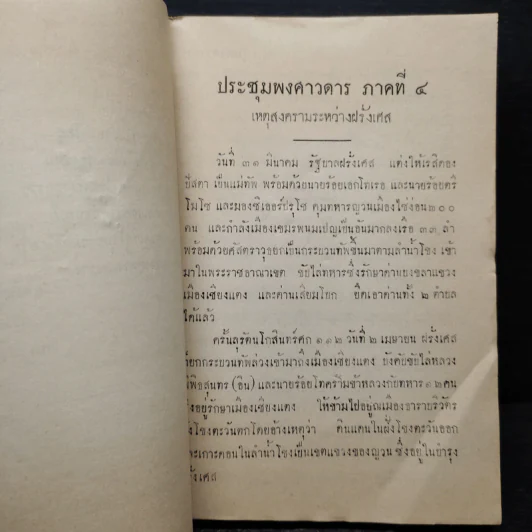 ประชุมพงศาวดาร ภาคที่ ๔
เหตุสงครามระหว่างฝรั่งเศส
วันที่ ๓๑ มีนาคม รัฐบาลฝรั่งเศส แต่งให้เรสิดอง
ปัสตา เป็นแม่ทัพ พร้อมด้วยนายร้อยเอกโทเรอ และนายร้อยตรี
โมโซ และมองซิเออร์ปรุโซ คุมทหารญวนเมืองไซ่ง่อน ๒๐๐
คน และกำลังเมืองเขมรพนมเปญเป็นอันมากลงเรือ ๓๓ ลำ
พร้อมด้วยศัสตราวุธออกเป็นกระบวนทัพขึ้นมาตามลำน้ำโขง เข้า
มาในพระราชอาณาเขต ขับไล่ทหารซึ่งรักษาด่านบงขลาแขวง
เมืองเชียงแตง และด่านเสียมโบก ยึดเอาด่านทั้ง ๒ ตำบล
ได้แล้ว
ครั้นลุรัตนโกสินทร์ศก ๑๑๒ วันที่ ๒ เมษายน ฝรั่งเศส
ก็ยกกระบวนทัพล่วงเข้ามาถึงเมืองเชียงแตง บังคับขับไล่หลวง
พิพิธสุนทร (อิน) และนายร้อยโทคร้ามข้าหลวงกับทหาร ๑๒ คน
ซึ่งอยู่รักษาเมืองเชียงแตง ให้ข้ามไปอยู่ณเมืองธาราบริวัตร
ฝั่งโขงตะวันตกโดยอ้างเหตุว่า ดินแดนในฝั่งโขงตะวันออก
และเกาะดอนในลำน้ำโขงเป็นเขตแขวงของญวน ซึ่งอยู่ในบำรุง
ฝรั่งเศส